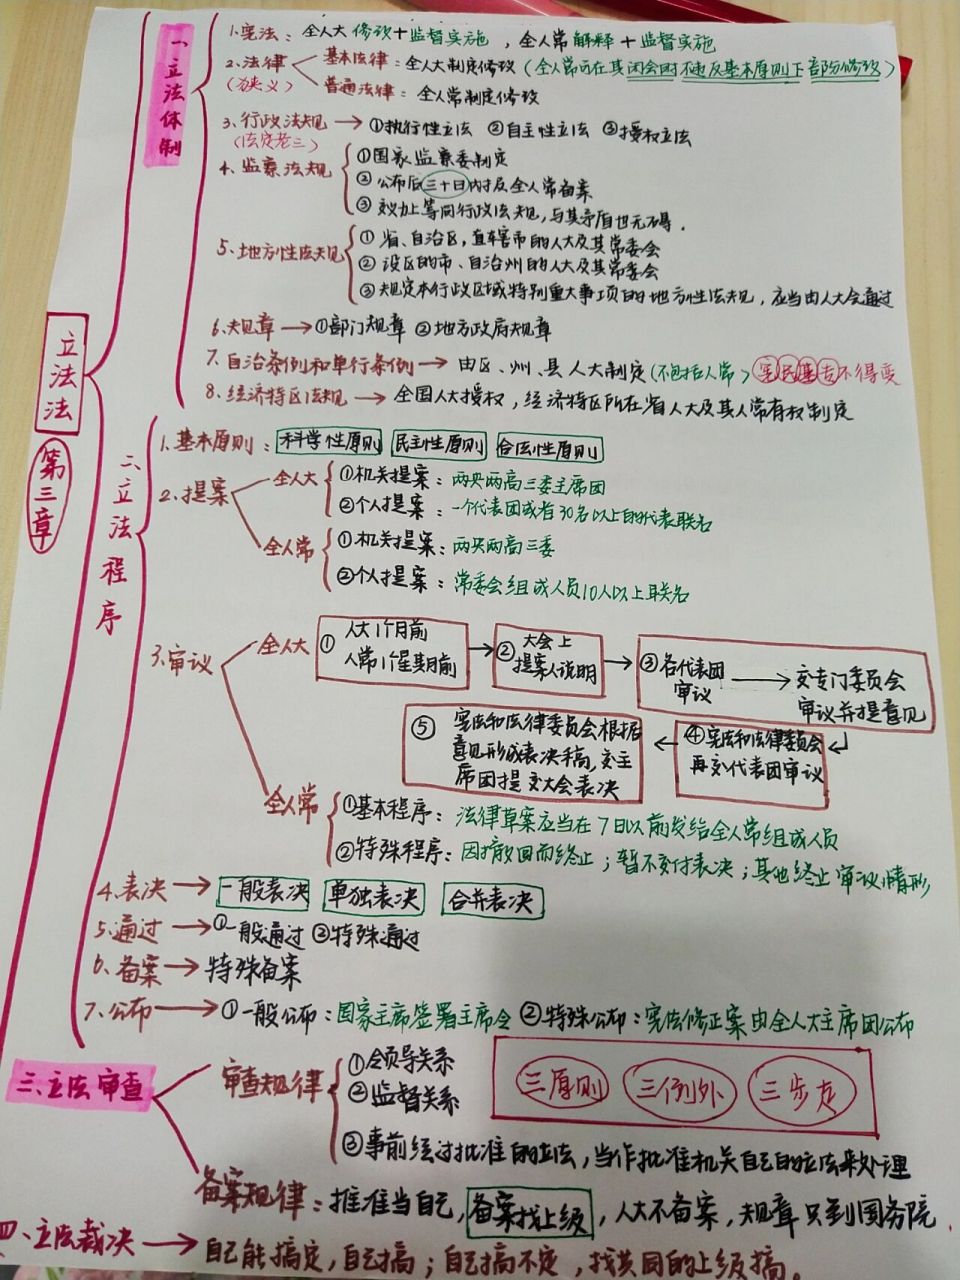 立法法
第三章
一、立法体制
1.宪法：全人大修改+监督实施，全人常解释+监督实施
2.法律（狭义）
基本法律：全人大制定修改（全人常可在其闭会时不违反基本原则下部分修改）
普通法律：全人常制定修改
3.行政法规（法定老三）→①执行性立法 ②自主性立法 ③授权立法
4.监察法规
①国家监察委制定
②公布后三十日内报全人常备案
③效力上等同行政法规，与其矛盾也无碍.
5.地方性法规
①省、自治区，直辖市的人大及其常委会
②设区的市、自治州的人大及其常委会
③规定本行政区域特别重大事项的地方性法规，应当由人大会通过
6.规章→①部门规章 ②地方政府规章
7.自治条例和单行条例→由区、州、县人大制定（不包括人常）宪民基专不得变
8.经济特区法规→全国人大授权，经济特区所在省人大及其人常有权制定
二、立法程序
1.基本原则：科学性原则 民主性原则 合法性原则
2.提案
全人大
①机关提案：两央两高三委主席团
②个人提案：一个代表团或者30名以上的代表联名
全人常
①机关提案：两央两高三委
②个人提案：常委会组成人员10人以上联名
3.审议
全人大
①人大1个月前
人常1个星期前
②大会上
提案人说明
③各代表团
审议
→交专门委员会
审议并提意见
④宪法和法律委员会
再交代表团审议
⑤宪法和法律委员会根据
意见形成表决稿，交主
席团提交大会表决
全人常
①基本程序：法律草案应当在7日以前发给全人常组成人员
②特殊程序：因撤回而终止；暂不交付表决；其他终止审议情形
4.表决→一般表决 单独表决 合并表决
5.通过→①一般通过 ②特殊通过
6.备案→特殊备案
7.公布→①一般公布：国家主席签署主席令 ②特殊公布：宪法修正案由全人大主席团公布
三、立法审查
审查规律
①领导关系
②监督关系
③事前经过批准的立法，当作批准机关自己的立法来处理
三原则 三例外 三步走
备案规律：批准当自己，备案找上级，人大不备案，规章只到国务院.
四、立法裁决→自己能搞定，自己搞；自己搞不定，找共同的上级搞。